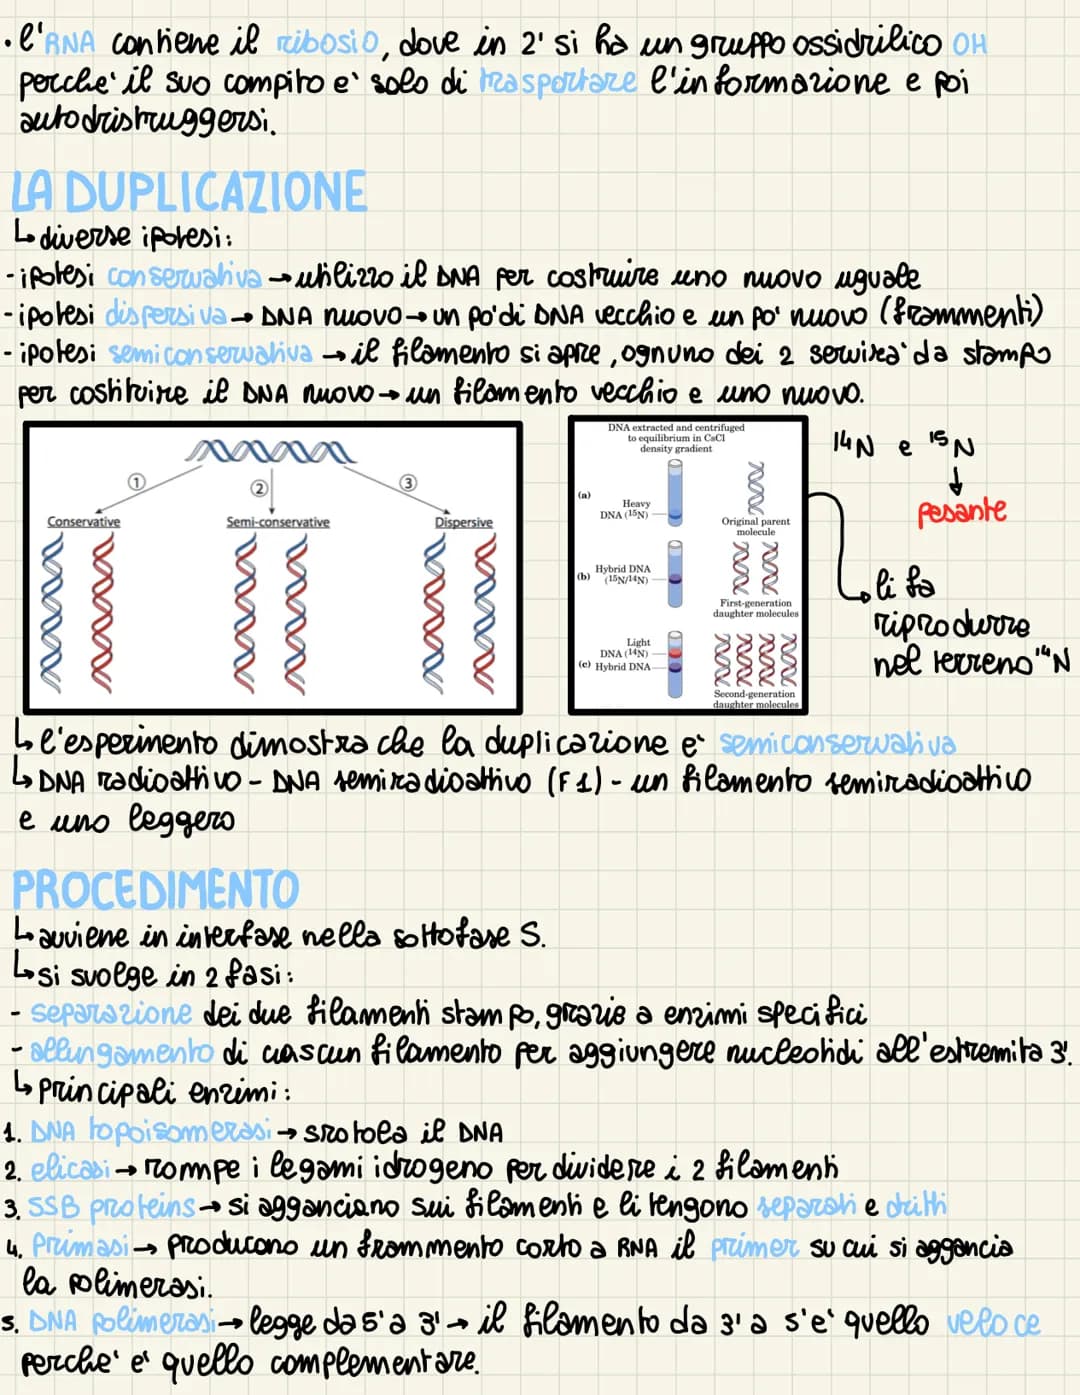 ·l'RNA contiene il ribosio, dove in 2' si ha un gruppo ossidrilico OH
perche' il suo compito e' solo di trasportare l'informazione e poi
autodristruggersi.
LA DUPLICAZIONE
↳ diverse ipotesi:
- ipotesi conservativa → utilizzo il DNA per costruire uno nuovo uguale
- ipotesi dispersiva → DNA nuovo → un po' di DNA vecchio e un po' nuovo (frammenti)
- ipotesi semiconservativa → il filamento si apre, ognuno dei 2 servira' da stampo
per costituire il DNA nuovo → un filamento vecchio e uno nuovo.
1
2
3
Conservative
Semi-conservative
Dispersive
DNA extracted and centrifuged
to equilibrium in CsCl
density gradient
(a)
Heavy
DNA (¹⁵N)
Original parent
molecule
(b)
Hybrid DNA
(¹⁵N/¹⁴N)
First-generation
daughter molecules
Light
DNA (¹⁴N)
(c) Hybrid DNA
Second-generation
daughter molecules
¹⁴N e ¹⁵N
↓
pesante
↳ li fa
riprodurre
nel terreno ¹⁴N
↳ l'esperimento dimostra che la duplicazione e' semiconservativa
↳ DNA radioattivo - DNA semiradioattivo (F1) - un filamento semiradioattivo
e uno leggero
PROCEDIMENTO
↳ avviene in interfase nella sottofase S.
↳ si svolge in 2 fasi:
- separazione dei due filamenti stampo, grazie a enzimi specifici
- allungamento di ciascun filamento per aggiungere nucleotidi all'estremita 3'.
↳ principali enzimi:
1. DNA topoisomerasi → srotola il DNA
2. elicasi → rompe i legami idrogeno per dividere i 2 filamenti
3. SSB proteins → si agganciano sui filamenti e li tengono separati e dritti
4. Primasi → producono un frammento corto a RNA il primer su cui si aggancia
la polimerasi.
5. DNA polimerasi → legge da 5' a 3' → il filamento da 3' a 5' e' quello veloce
perche' e' quello complementare.